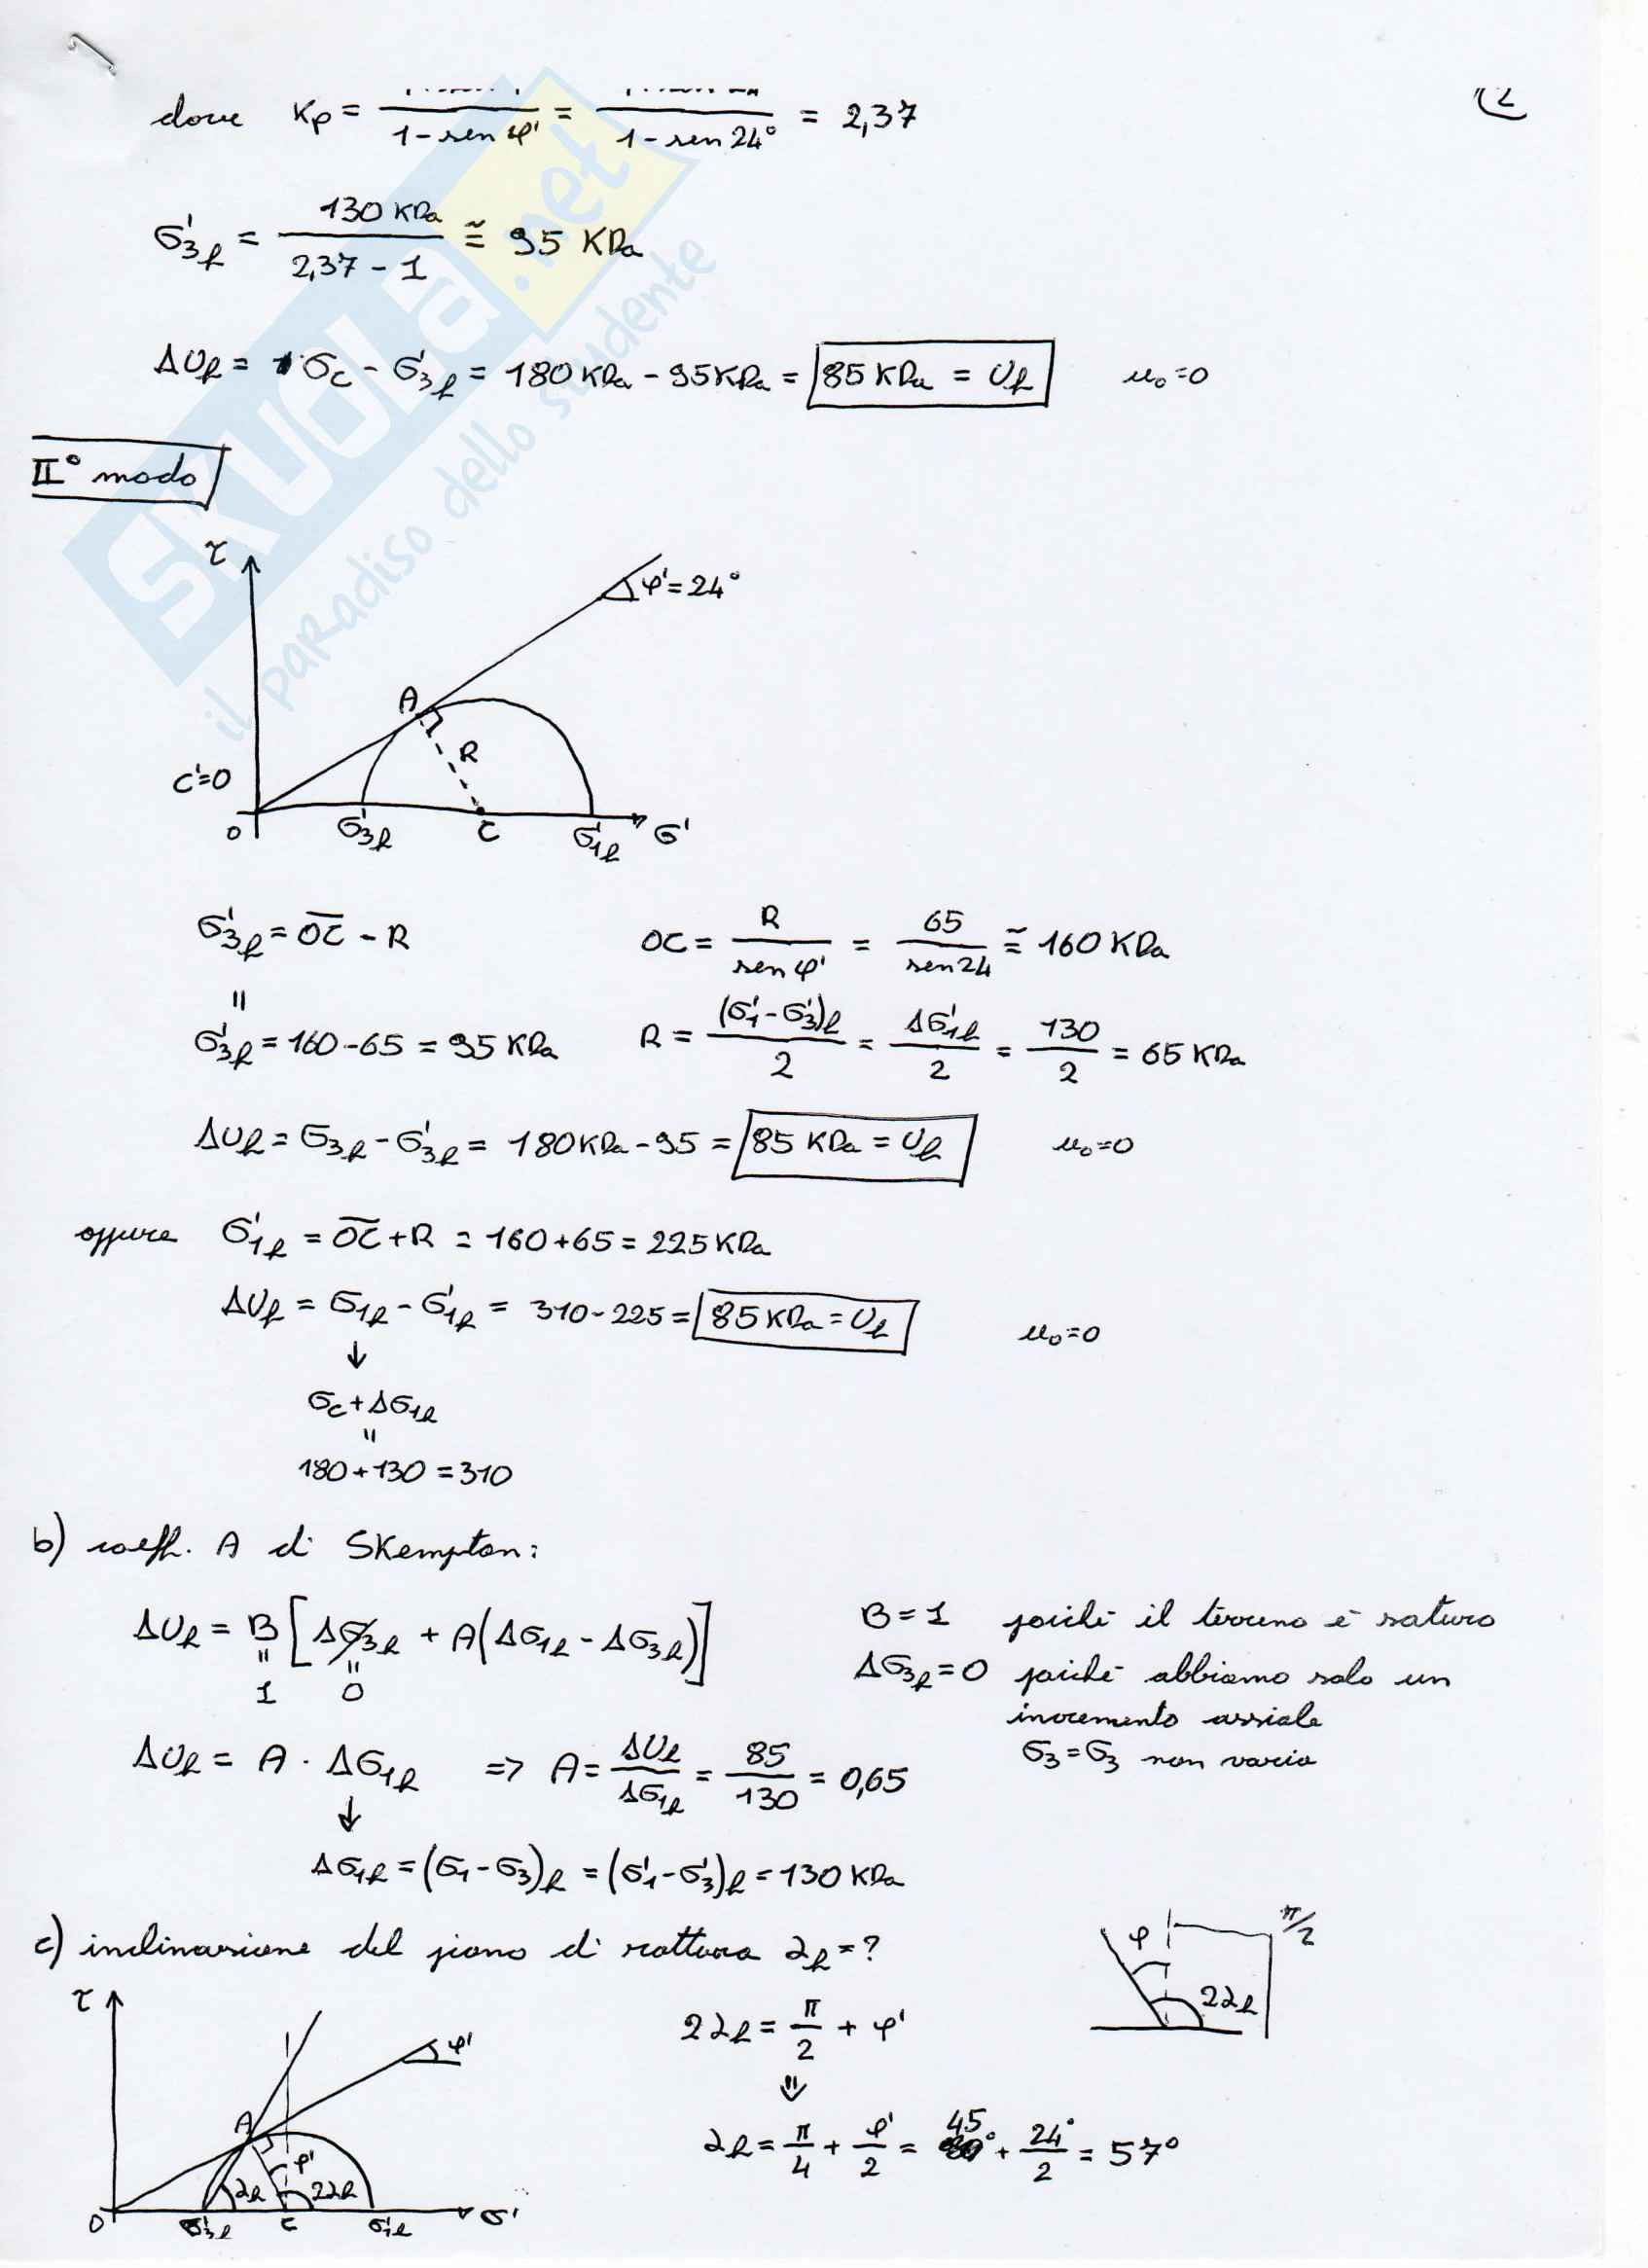 dove Kp = / 1 - sen φ' = / 1 - sen 24° = 2,37
σ'3f = 130 KPa / 2,37 - 1 ≅ 95 KPa
ΔUf = σc - σ'3f = 180 KPa - 95 KPa = 85 KPa = Uf u0=0
II° modo
τ
φ'=24°
A
R
C'=0
O σ'3f C σ'1f σ'
σ'3f = OC - R OC = R / sen φ' = 65 / sen 24 ≅ 160 KPa
"
σ'3f = 160 - 65 = 95 KPa R = (σ'1 - σ'3)f / 2 = Δσ'1f / 2 = 130 / 2 = 65 KPa
ΔUf = σ3f - σ'3f = 180 KPa - 95 = 85 KPa = Uf u0=0
oppure σ'1f = OC + R = 160 + 65 = 225 KPa
ΔUf = σ1f - σ'1f = 310 - 225 = 85 KPa = Uf u0=0
↓
σc + Δσ1f
"
180 + 130 = 310
b) coeff. A di Skempton:
ΔUf = B [Δσ3f + A(Δσ1f - Δσ3f)] B = 1 poiché il terreno è saturo
" "
1 0
Δσ3f = 0 poiché abbiamo solo un
incremento assiale
σ3 = σ3 non varia
ΔUf = A · Δσ1f => A = ΔUf / Δσ1f = 85 / 130 = 0,65
↓
Δσ1f = (σ1 - σ3)f = (σ'1 - σ'3)f = 130 KPa
c) inclinazione del piano di rottura αf = ?
φ π/2
2αf
τ
φ'
A
φ'
αf 2αf
O σ'3f C σ'1f σ'
2αf = π/2 + φ'
⇓
αf = π/4 + φ'/2 = 45° + 24°/2 = 57°
SKUOLA.net
il paradiso dello studente